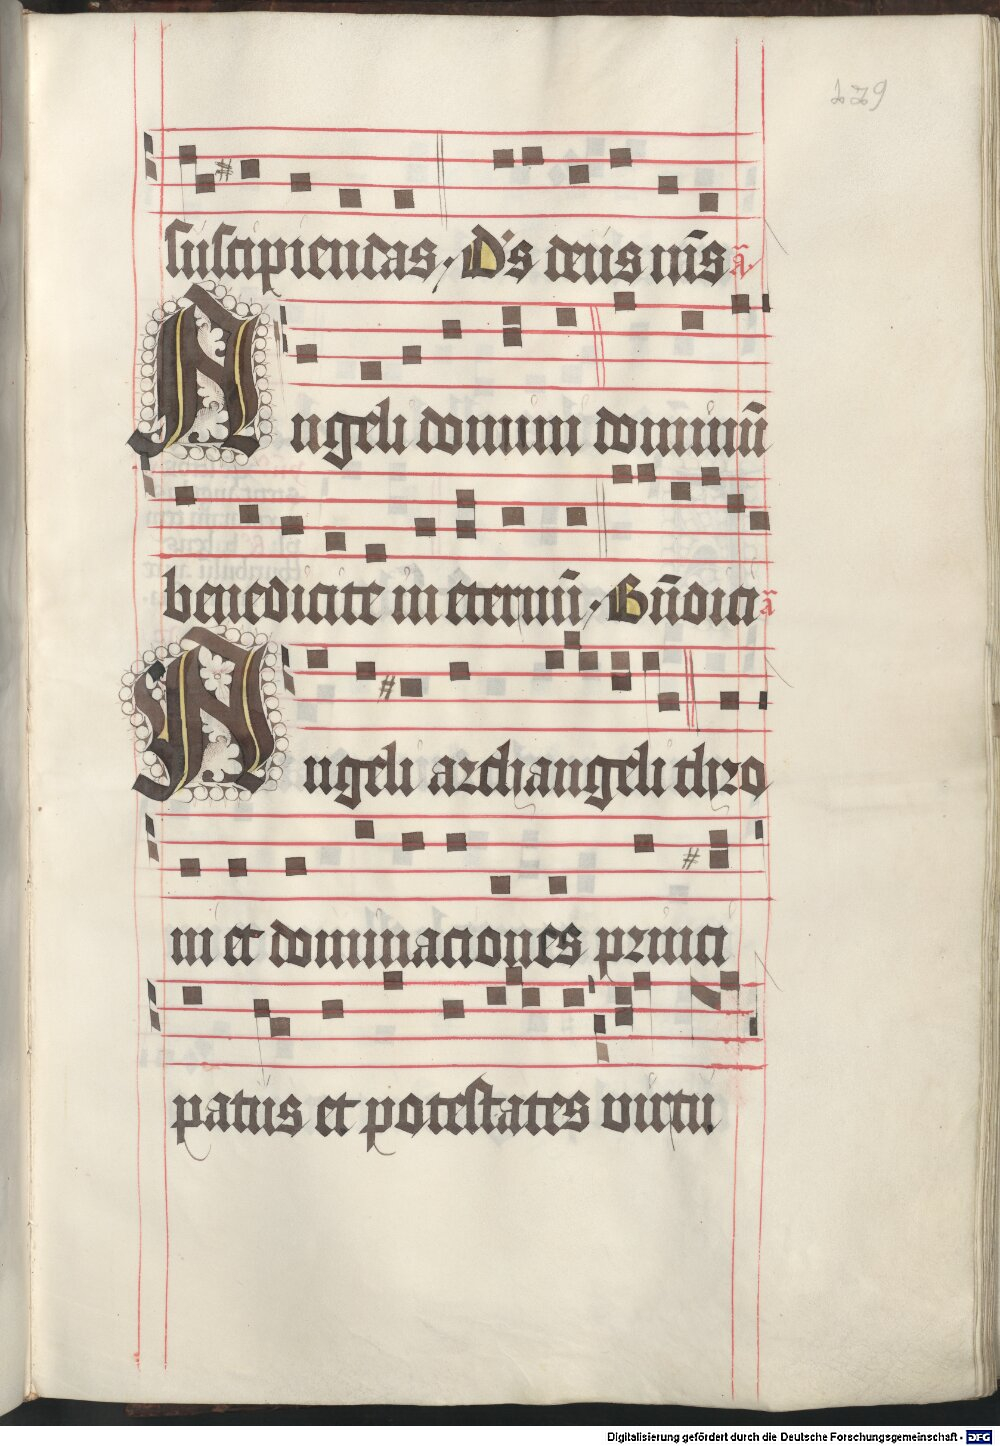 179
suscipiendas· Dʼs deus nr̄s ā·
Angeli domini dominū
benedicite in eternū· Bn̄dici ā
Angeli archangeli thro
ni et dominaciones princi
patus et potestates virtu
Digitalisierung gefördert durch die Deutsche Forschungsgemeinschaft - DFG